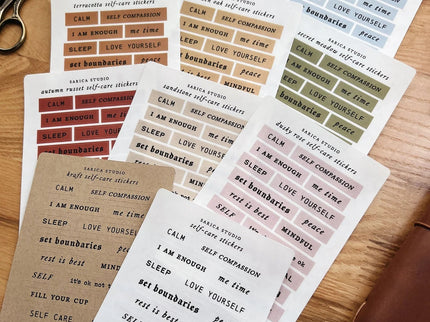 terracotta self-care stickers
CALM SELF COMPASSION
I AM ENOUGH me time
SLEEP LOVE YOURSELF
set boundaries peace
oak self-care stickers
CALM SELF COMPASSION
I AM ENOUGH me time
SLEEP LOVE YOURSELF
set boundaries peace
I AM ENOUGH me time
SLEEP LOVE YOURSELF
set boundaries peace
secret meadow self-care stickers
CALM SELF COMPASSION
I AM ENOUGH me time
SLEEP LOVE YOURSELF
set boundaries peace
SARICA STUDIO
autumn russet self-care stickers
CALM SELF COMPASSION
I AM ENOUGH me time
SLEEP LOVE YOURSELF
set boundaries
SARICA STUDIO
sandstone self-care stickers
CALM SELF COMPASSION
I AM ENOUGH me time
SLEEP LOVE YOURSELF
set boundaries
rest is best
SELF
SARICA STUDIO
dusty rose self-care stickers
CALM SELF COMPASSION
I AM ENOUGH me time
SLEEP LOVE YOURSELF
set boundaries peace
rest is best MINDFUL
SELF
SARICA STUDIO
kraft self-care stickers
CALM SELF COMPASSION
I AM ENOUGH me time
SLEEP LOVE YOURSELF
set boundaries peace
rest is best MINDFUL
SELF it's ok not t
FILL YOUR CUP
SELF CARE
SARICA STUDIO
self-care stickers
CALM SELF COMPASSION
I AM ENOUGH me time
SLEEP LOVE YOURSELF
set boundaries peace
rest is best MINDFUL